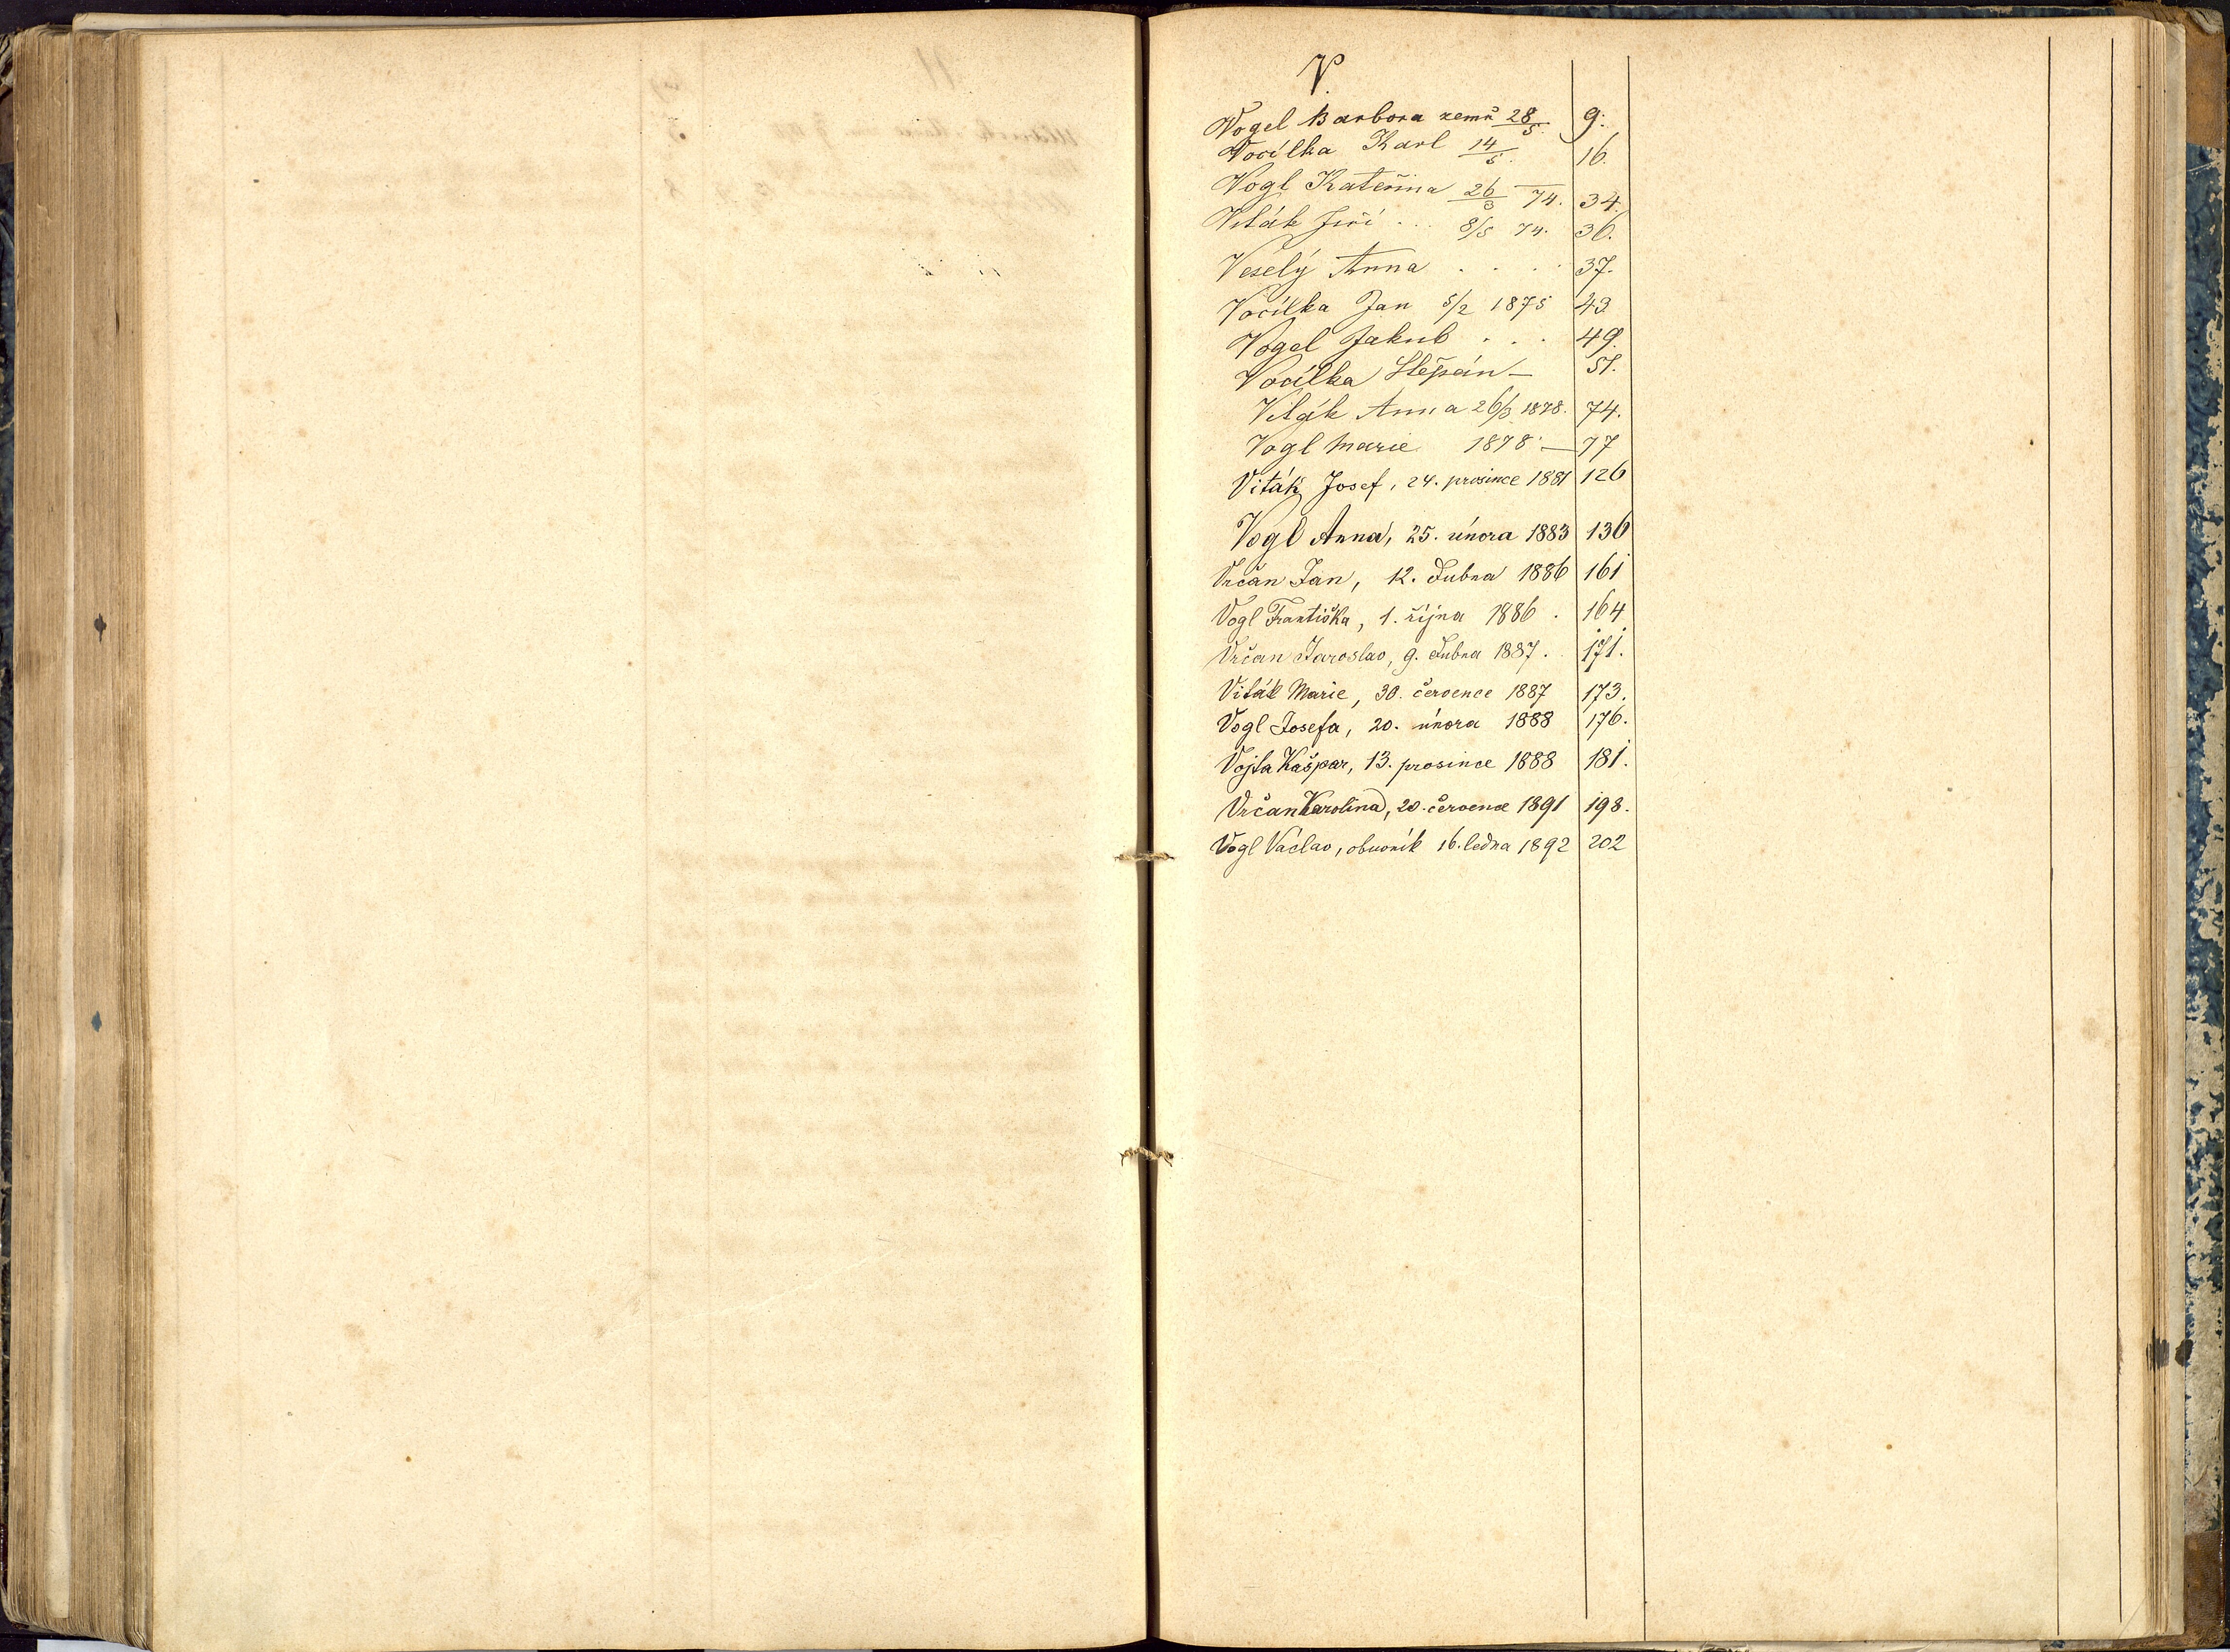 V.
Vogel Barbora zemř 28/5. 9.
Vocílka Karl 14/5. 16.
Vogl Kateřina 26/3 74. 34.
Viták Jiří ... 8/5 74. 36.
Veselý Anna .... 37.
Vocílka Jan 5/2 1875 43
Vogel Jakub ... 49.
Vocílka Štěpán — 51.
Viták Anna 26/3 1878. 74.
Vogl Marie 1878 — 77
Viták Josef, 24. prosince 1881 126
Vogl Anna, 25. února 1883 136
Vrčan Jan, 12. dubna 1886 161
Vogl Františka, 1. října 1886. 164
Vrčan Jaroslav, 9. dubna 1887. 171.
Viták Marie, 30. července 1887 173.
Vogl Josefa, 20. února 1888 176.
Vojta Kašpar, 13. prosince 1888 181.
Vrčan Karolina, 20. července 1891 198.
Vogl Václav, obuvník 16. ledna 1892 202